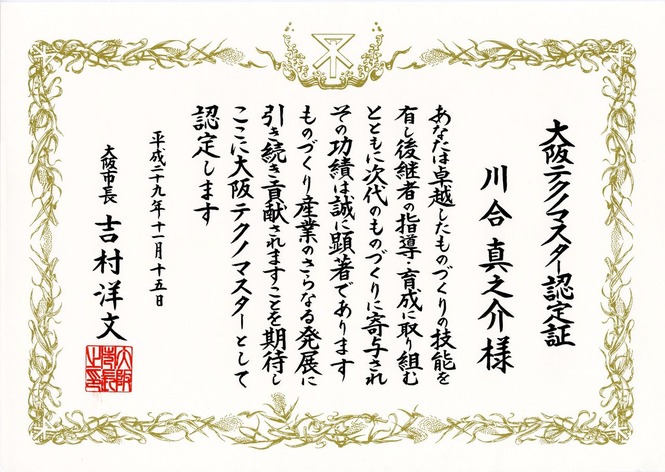 大阪テクノマスター認定証
川合真之介様
あなたは卓越したものづくりの技能を
有し後継者の指導・育成に取り組む
とともに次代のものづくりに寄与され
その功績は誠に顕著であります
ものづくり産業のさらなる発展に
引き続き貢献されますことを期待し
ここに大阪テクノマスターとして
認定します
平成二十九年十一月十五日
大阪市長 吉村洋文
大阪市長之印